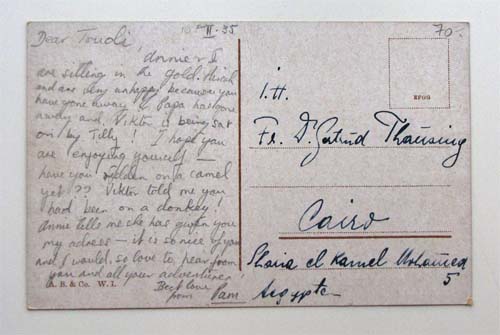 10 II. 35
70.-
Dear Trudi
Annie & I
are sitting in the gold. Hirsch
and are very unhappy because you
have gone away & Papa has gone
away and Viktor is being sat
on by Tilly! I hope you
are enjoying yourself —
have you ridden on a camel
yet?? Viktor told me you
had been on a donkey!
Annie tells me she has given you
my adress — it is so nice of you
and I would so love to hear from
you and all your adventures
Best love
from Pam
A. B. & Co. W. I.
EFOG
i. H.
Fr. Dr. Gertrud Thausing
Cairo
Sharia el Kamel Mohamed
5
Aegypten